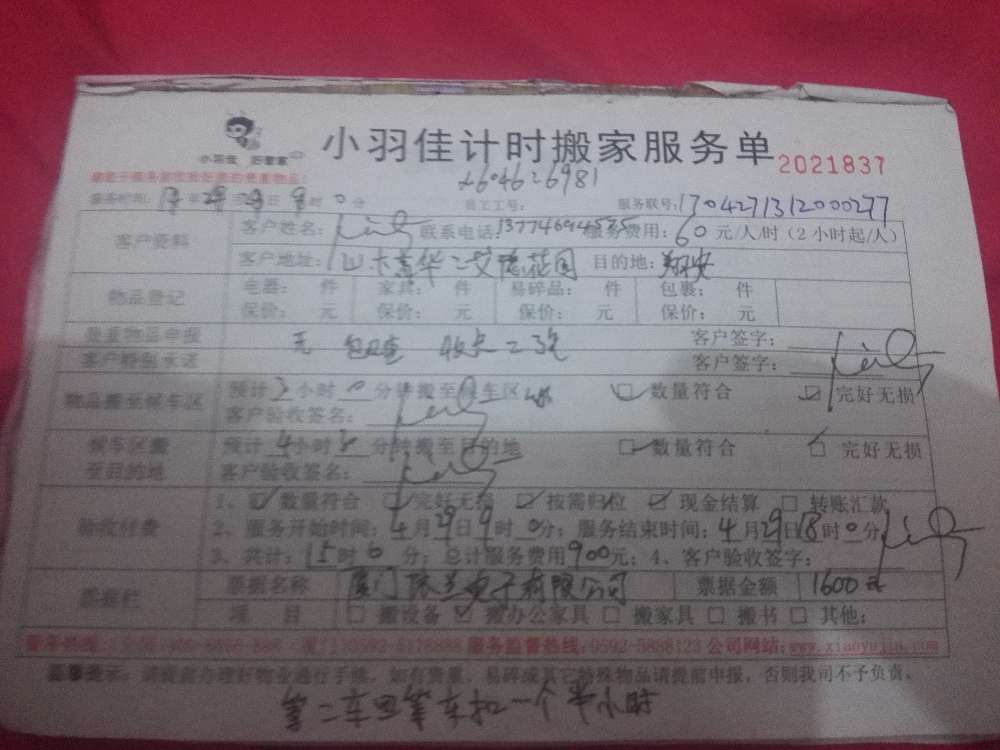 小羽佳 好管家
小羽佳计时搬家服务单 2021837
604626981
服务时间: 年 29日 9时0分 员工工号: 服务联号:1704271312000277
客户资料 客户姓名: 联系电话: 服务费用:60元/人/时(2小时起/人)
客户地址: 花园 目的地:翔安
物品登记 电器: 件 家具: 件 易碎品: 件 包裹: 件
保价: 元 保价: 元 保价: 元 保价: 元
贵重物品申报 无 客户签字:
客户特别承诺 客户签字:
物品搬至候车区 预计2小时0分钟搬至候车区 ☑数量符合 ☑完好无损
客户验收签名:
候车区搬 预计4小时 分钟搬至目的地 ☑数量符合 ☑完好无损
至目的地 客户验收签名:
验收付费 1、☑数量符合 ☑完好无损 ☑按需归位 ☑现金结算 □转账汇款
2、服务开始时间:4月29日9时0分;服务结束时间:4月29日18时0分
3、共计:15时0分;总计服务费用900元;4、客户验收签字:
票据栏 票据名称 厦门 电子有限公司 票据金额 1600元
项 目 □搬设备 ☑搬办公家具 □搬家具 □搬书 □其他:
服务热线: 服务监督热线:0592-5888123 公司网站:www.xiaoyujia.com
温馨提示: 办理好物业进行手续,如有贵重、易碎或其它特殊物品请提前申报,否则我司不予负责。
第二车 等车扣一个半小时